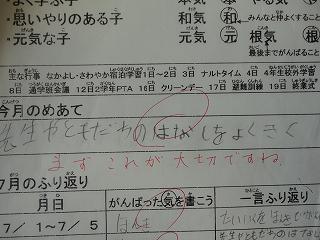 ・よく学ぶ子
・思いやりのある子 和気 和 みんなと仲よくすること
・元気な子 元気 元 根気 根
最後までがんばること
主な行事 なかよし・さわやか宿泊学習1日~2日 3日 ナルトタイム 4日 4年生校外学習
8日 通学班会議 12日2学年PTA 16日 クリーンデー 17日 避難訓練 19日 終業式
今月のめあて
先生やともだちのはなしをよくきく
まず これが 大切ですね。
7月のふり返り
月日 がんばった気を書こう 一言ふり返り
7/1~7/5